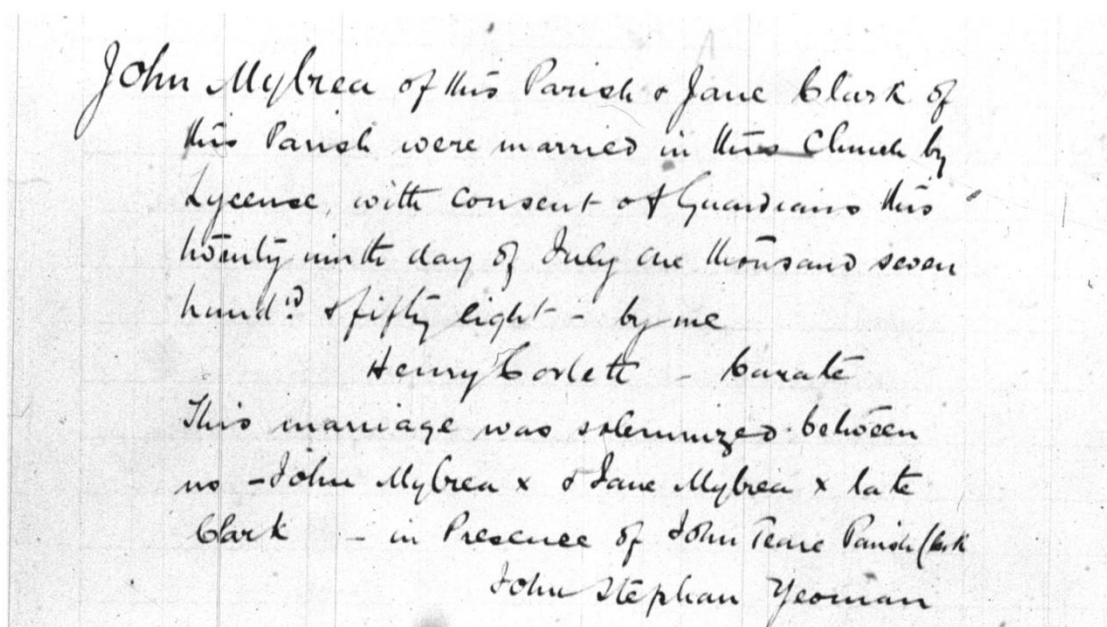 John Mylrea of this Parish & Jane Clark of
this Parish were married in this Church by
Lycense, with consent of Guardians this
twenty ninth day of July one thousand seven
hund.d & fifty eight - by me
Henry Corlett - Curate
This marriage was solemnized between
us - John Mylrea x & Jane Mylrea x late
Clark - in Presence of John Teare Parish Clerk
John Stephan Yeoman